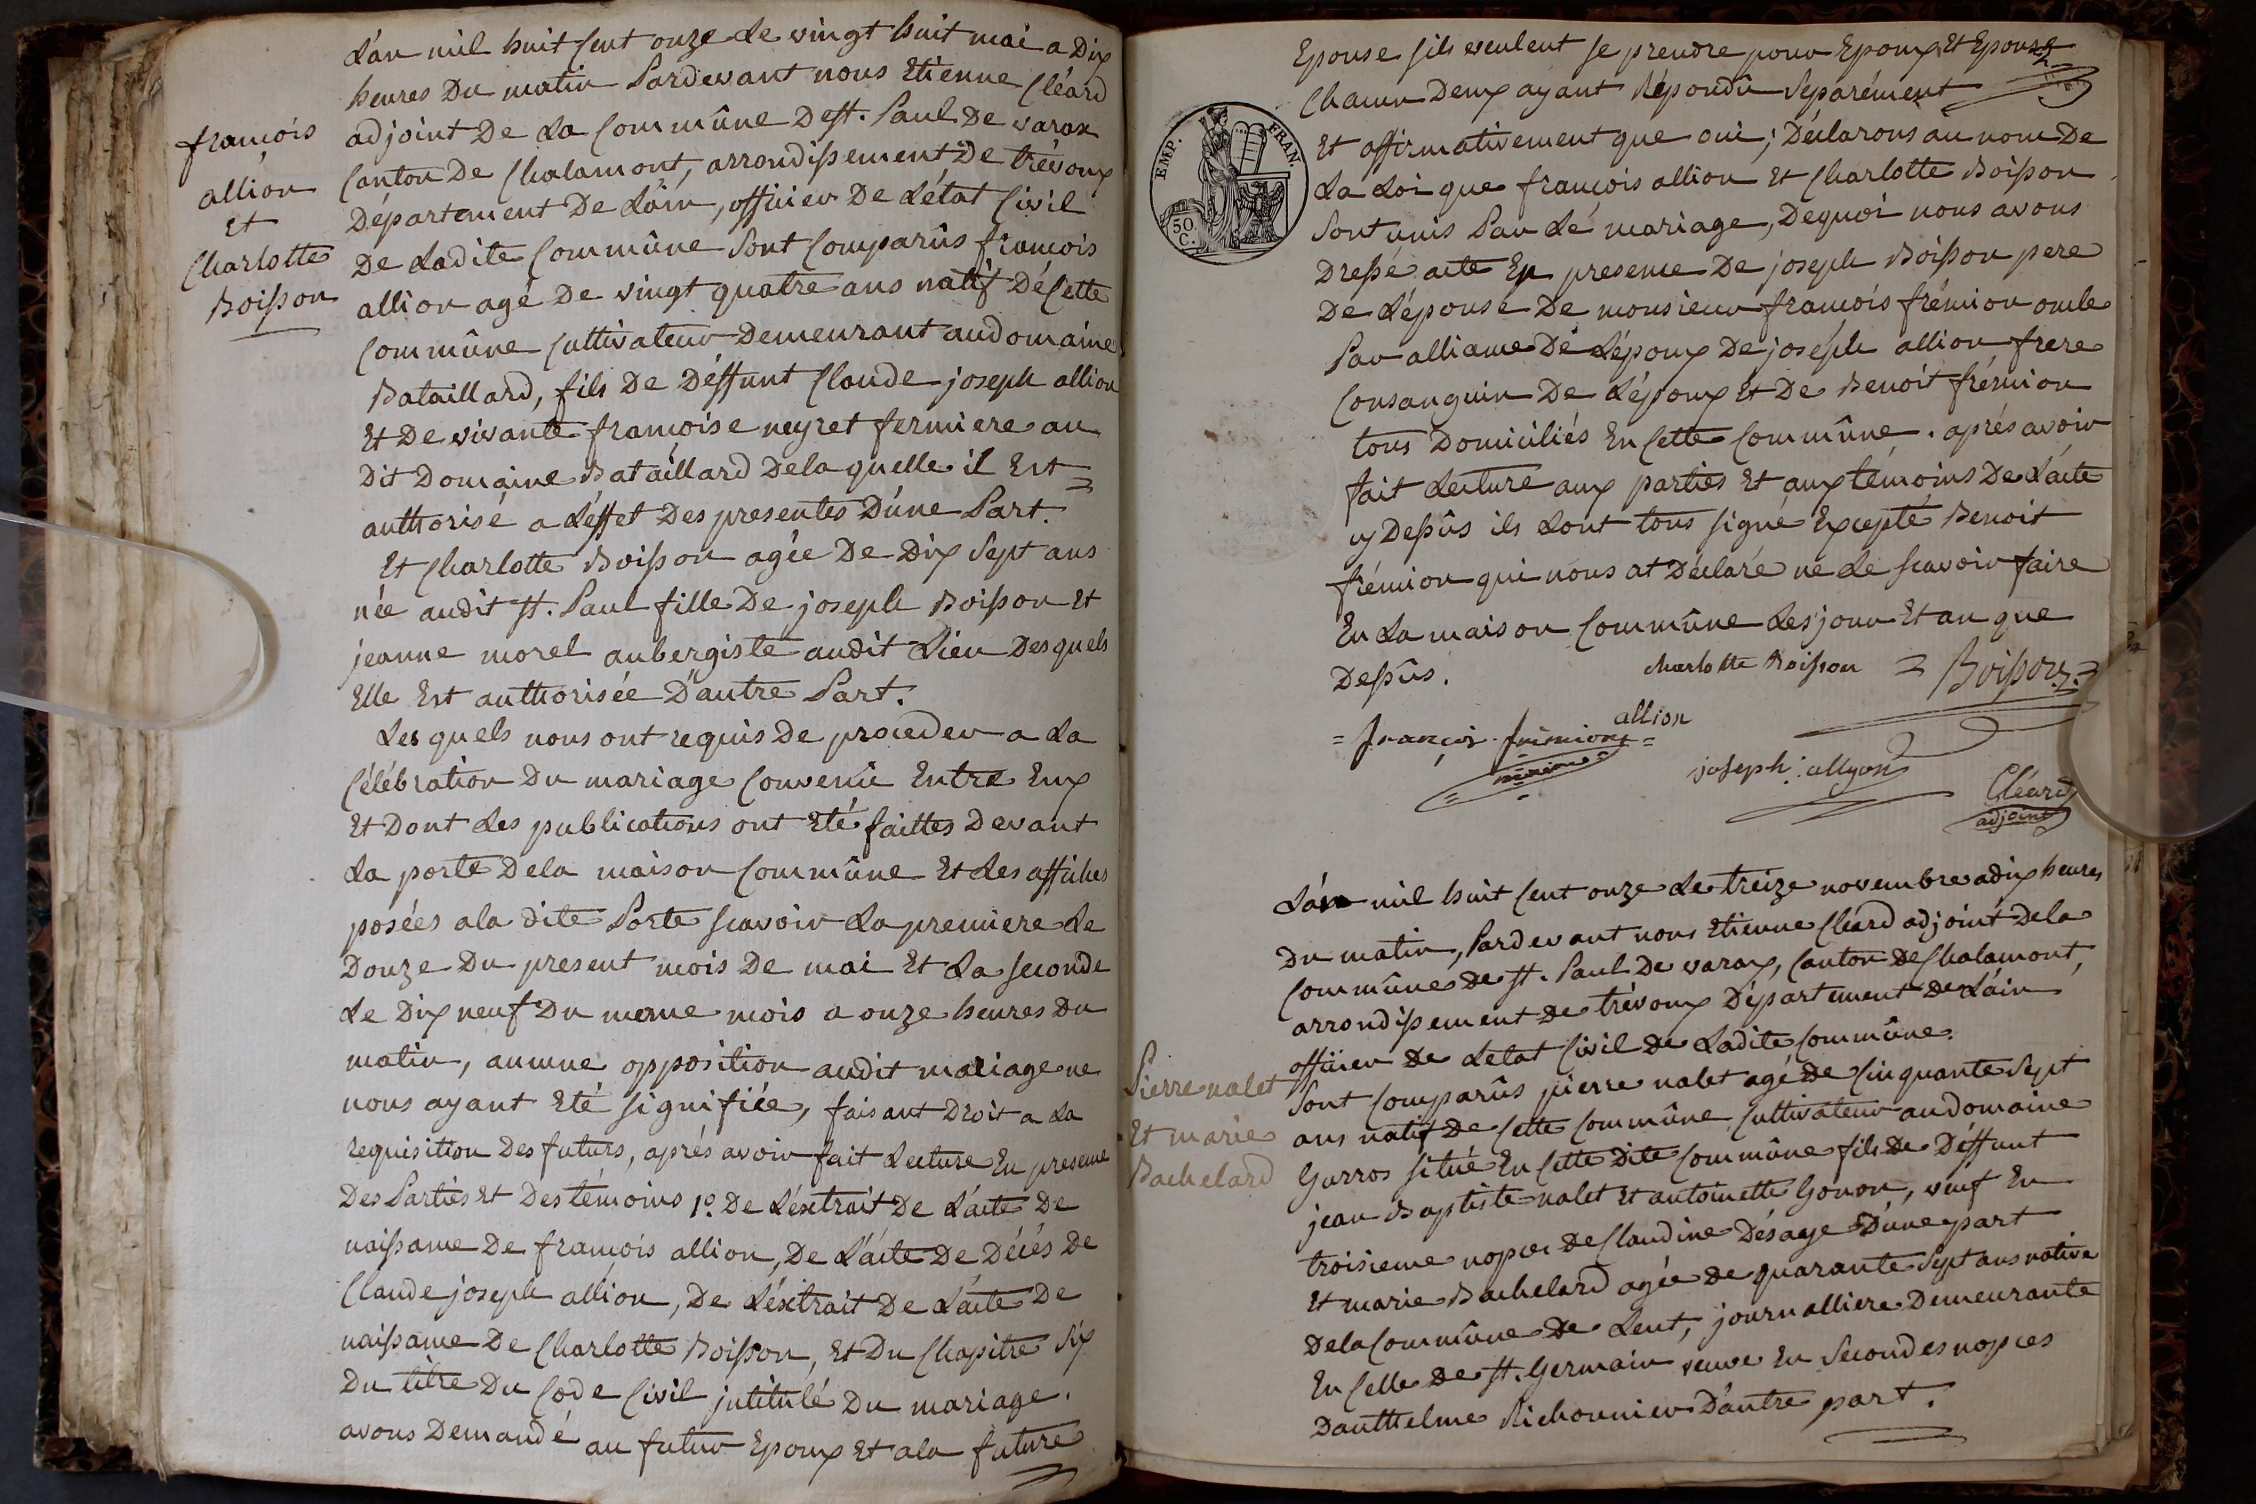 L'an mil huit Cent onze Le vingt huit mai a Dix
heures Du matin Pardevant nous Etienne Cléard
adjoint De La Commûne De St. Paul De varax
Canton De Chalamont, arrondissement De trévoux
Département De L'ain, officier De L'état Civil
De Ladite Commûne Sont Comparûs françois
allion agé De vingt quatre ans natif De Cette
Commûne Cultivateur Demeurant au domaine
Bataillard, fils De Déffunt Claude joseph allion
Et De vivante françoise neyret fermiere au
Dit Domaine Bataillard De la quelle il Est
authorisé a L'éffet Des presentes D'une Part.
Et Charlotte Boisson agée De Dix Sept ans
née audit St. Paul fille De joseph Boisson Et
jeanne morel aubergiste audit Lieu Desquels
Elle Est authorisée D'autre Part.
Les quels nous ont requis De proceder a La
Célébration Du mariage Convenû Entre Eux
Et Dont Les publications ont Eté faittes Devant
La porte De la maison Commûne Et Les affiches
posées a la dite Porte scavoir La premiere Le
Douze Du present mois De mai Et La seconde
Le Dix neuf Du meme mois a onze heures Du
matin, aucune opposition audit mariage ne
nous ayant Eté signifiée, faisant Droit a La
requisition Des futurs, aprés avoir fait Lecture En presence
Des Parties Et Des témoins 1º. De L'éxtrait De L'acte De
naissance De françois allion, De L'acte De Décés De
Claude joseph allion, De L'éxtrait De L'acte De
naissance De Charlotte Boisson, Et Du Chapitre Six
Du titre Du Code Civil jntitulé Du mariage.
avons Demandé au futur Epoux Et a la future
françois
allion
Et
Charlotte
Boisson
Epouse s'ils veulent se prendre pour Epoux Et Epouse
Chacun Deux ayant Répondû Séparément
Et affirmativement que oui; Déclarons au nom De
La Loi que françois allion Et Charlotte Boisson
Sont unis Par Le mariage, De quoi nous avons
Dressé acte En presence De joseph Boisson pere
De L'épouse De monsieur françois frémion oncle
Par alliance De L'époux De joseph allion frere
Consanguin De L'époux Et De Benoit frémion
tous Domiciliés En Cette Commûne. aprés avoir
fait Lecture aux parties Et aux témoins De L'acte
cy Dessûs ils Lont tous signé Excepté Benoit
frémion qui nous at Déclaré ne Le scavoir faire
En La maison Commûne Les jour Et an que
Dessûs.
charlotte Boisson = Boisson =
allion
= françois frémion =
maire
joseph : allyon
Cléard
adjoint
EMP. FRAN.
50
C.
L'an mil huit Cent onze Le treize novembre a dix heures
Du matin, Pardevant nous Etienne Cléard adjoint De la
Commûne De St. Paul De varax, Canton De Chalamont,
arrondissement De trévoux Département De L'ain
officier De Letat Civil De Ladite Commûne.
Sont Comparûs pierre nalet agé De Cinquante Sept
ans natif De Cette Commûne Cultivateur au domaine
Garros situé En Cette Dite Commûne fils De Déffunt
jean Baptiste nalet Et antoinette Gonon, veuf En
troisieme nopces De Claudine Désage D'une part
Et marie Bachelard agée De quarante Sept ans native
De la Commûne De Lent, journalliere Demeurante
En Celle De St. Germain veuve En Secondes nopces
Danthelme Richonnier D'autre part.
Pierre nalet
Et marie
Bachelard